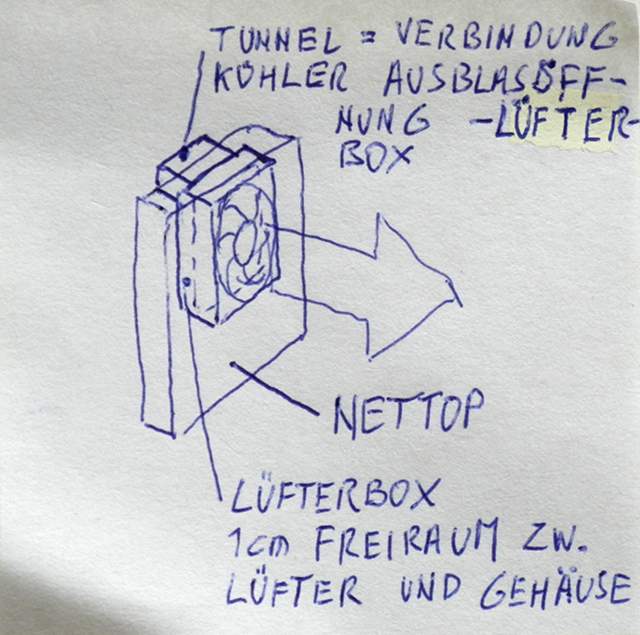 TUNNEL = VERBINDUNG
KÜHLER AUSBLASÖFF-
NUNG -LÜFTER-
BOX
NETTOP
LÜFTERBOX
1cm FREIRAUM ZW.
LÜFTER UND GEHÄUSE